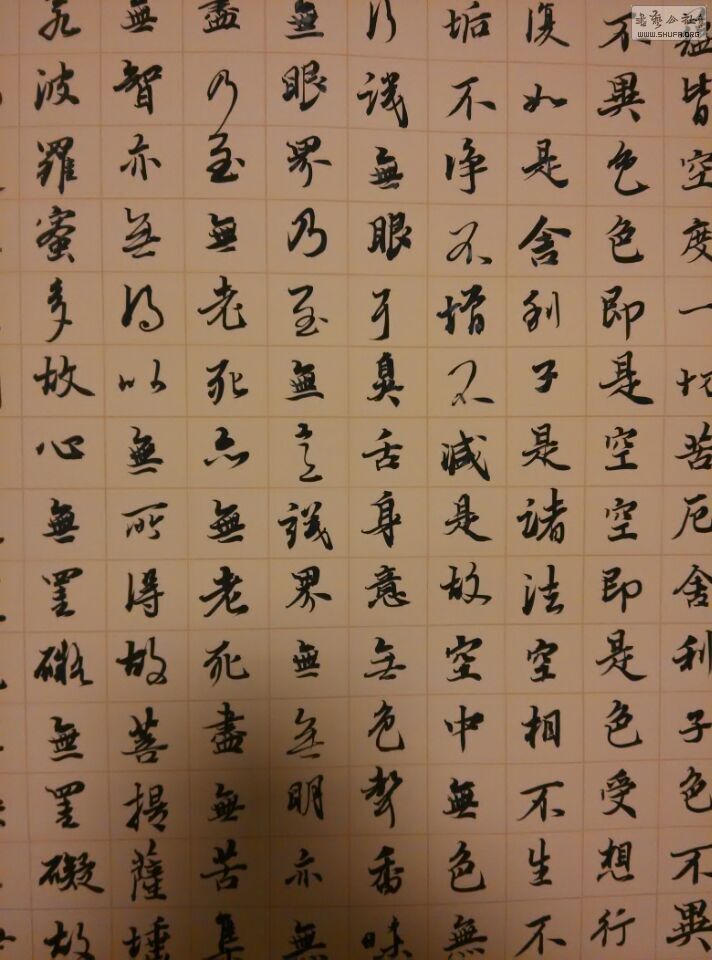 蘊皆空度一切苦厄舍利子色不異
不異色色即是空空即是色受想行
復如是舍利子是諸法空相不生不
垢不淨不增不減是故空中無色無
行識無眼耳鼻舌身意無色聲香味
無眼界乃至無意識界無無明亦無
盡乃至無老死亦無老死盡無苦集
無智亦無得以無所得故菩提薩埵
若波羅蜜多故心無罣礙無罣礙故
書藝公社
WWW.SHUFA.ORG